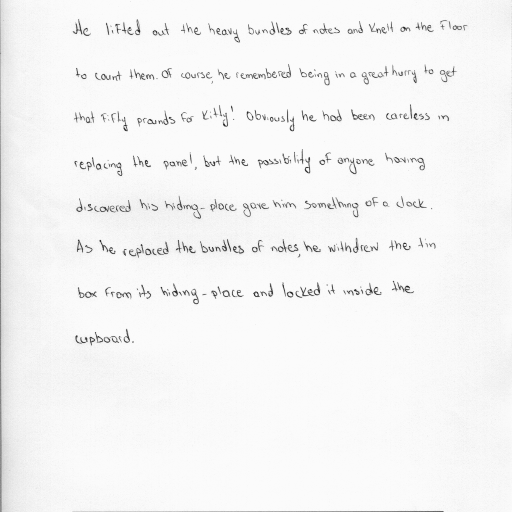 He lifted out the heavy bundles of notes and knelt on the floor
to count them. Of course, he remembered being in a great hurry to get
that fifty pounds for Kitty! Obviously he had been careless in
replacing the panel, but the possibility of anyone having
discovered his hiding-place gave him something of a clock.
As he replaced the bundles of notes, he withdrew the tin
box from its hiding-place and locked it inside the
cupboard.